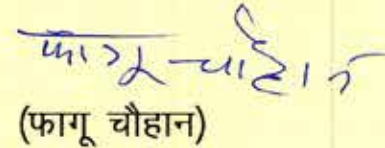 फागू चौहान
(फागू चौहान)